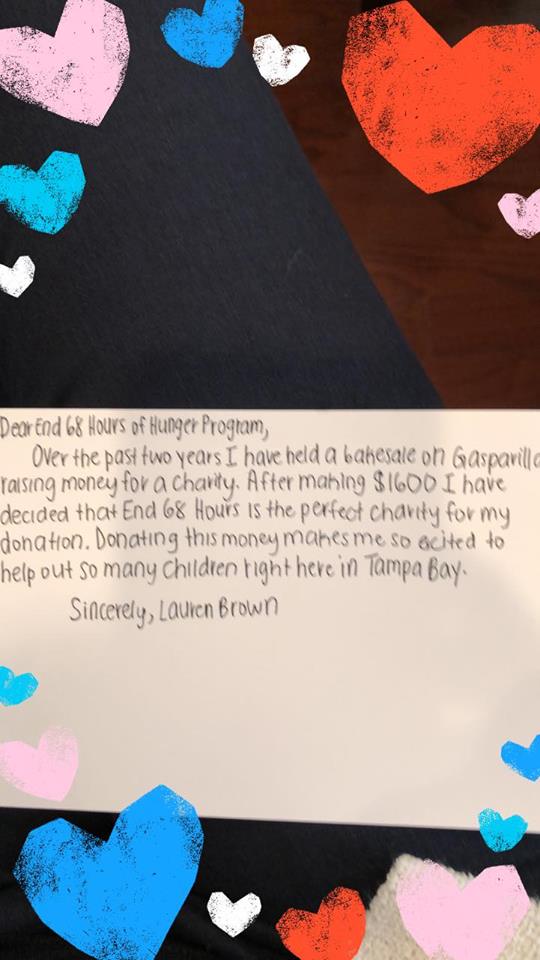 Dear End 68 Hours of Hunger Program,
Over the past two years I have held a bakesale on Gasparilla
raising money for a charity. After making $1600 I have
decided that End 68 Hours is the perfect charity for my
donation. Donating this money makes me so ecited to
help out so many children right here in Tampa Bay.
Sincerely, Lauren Brown